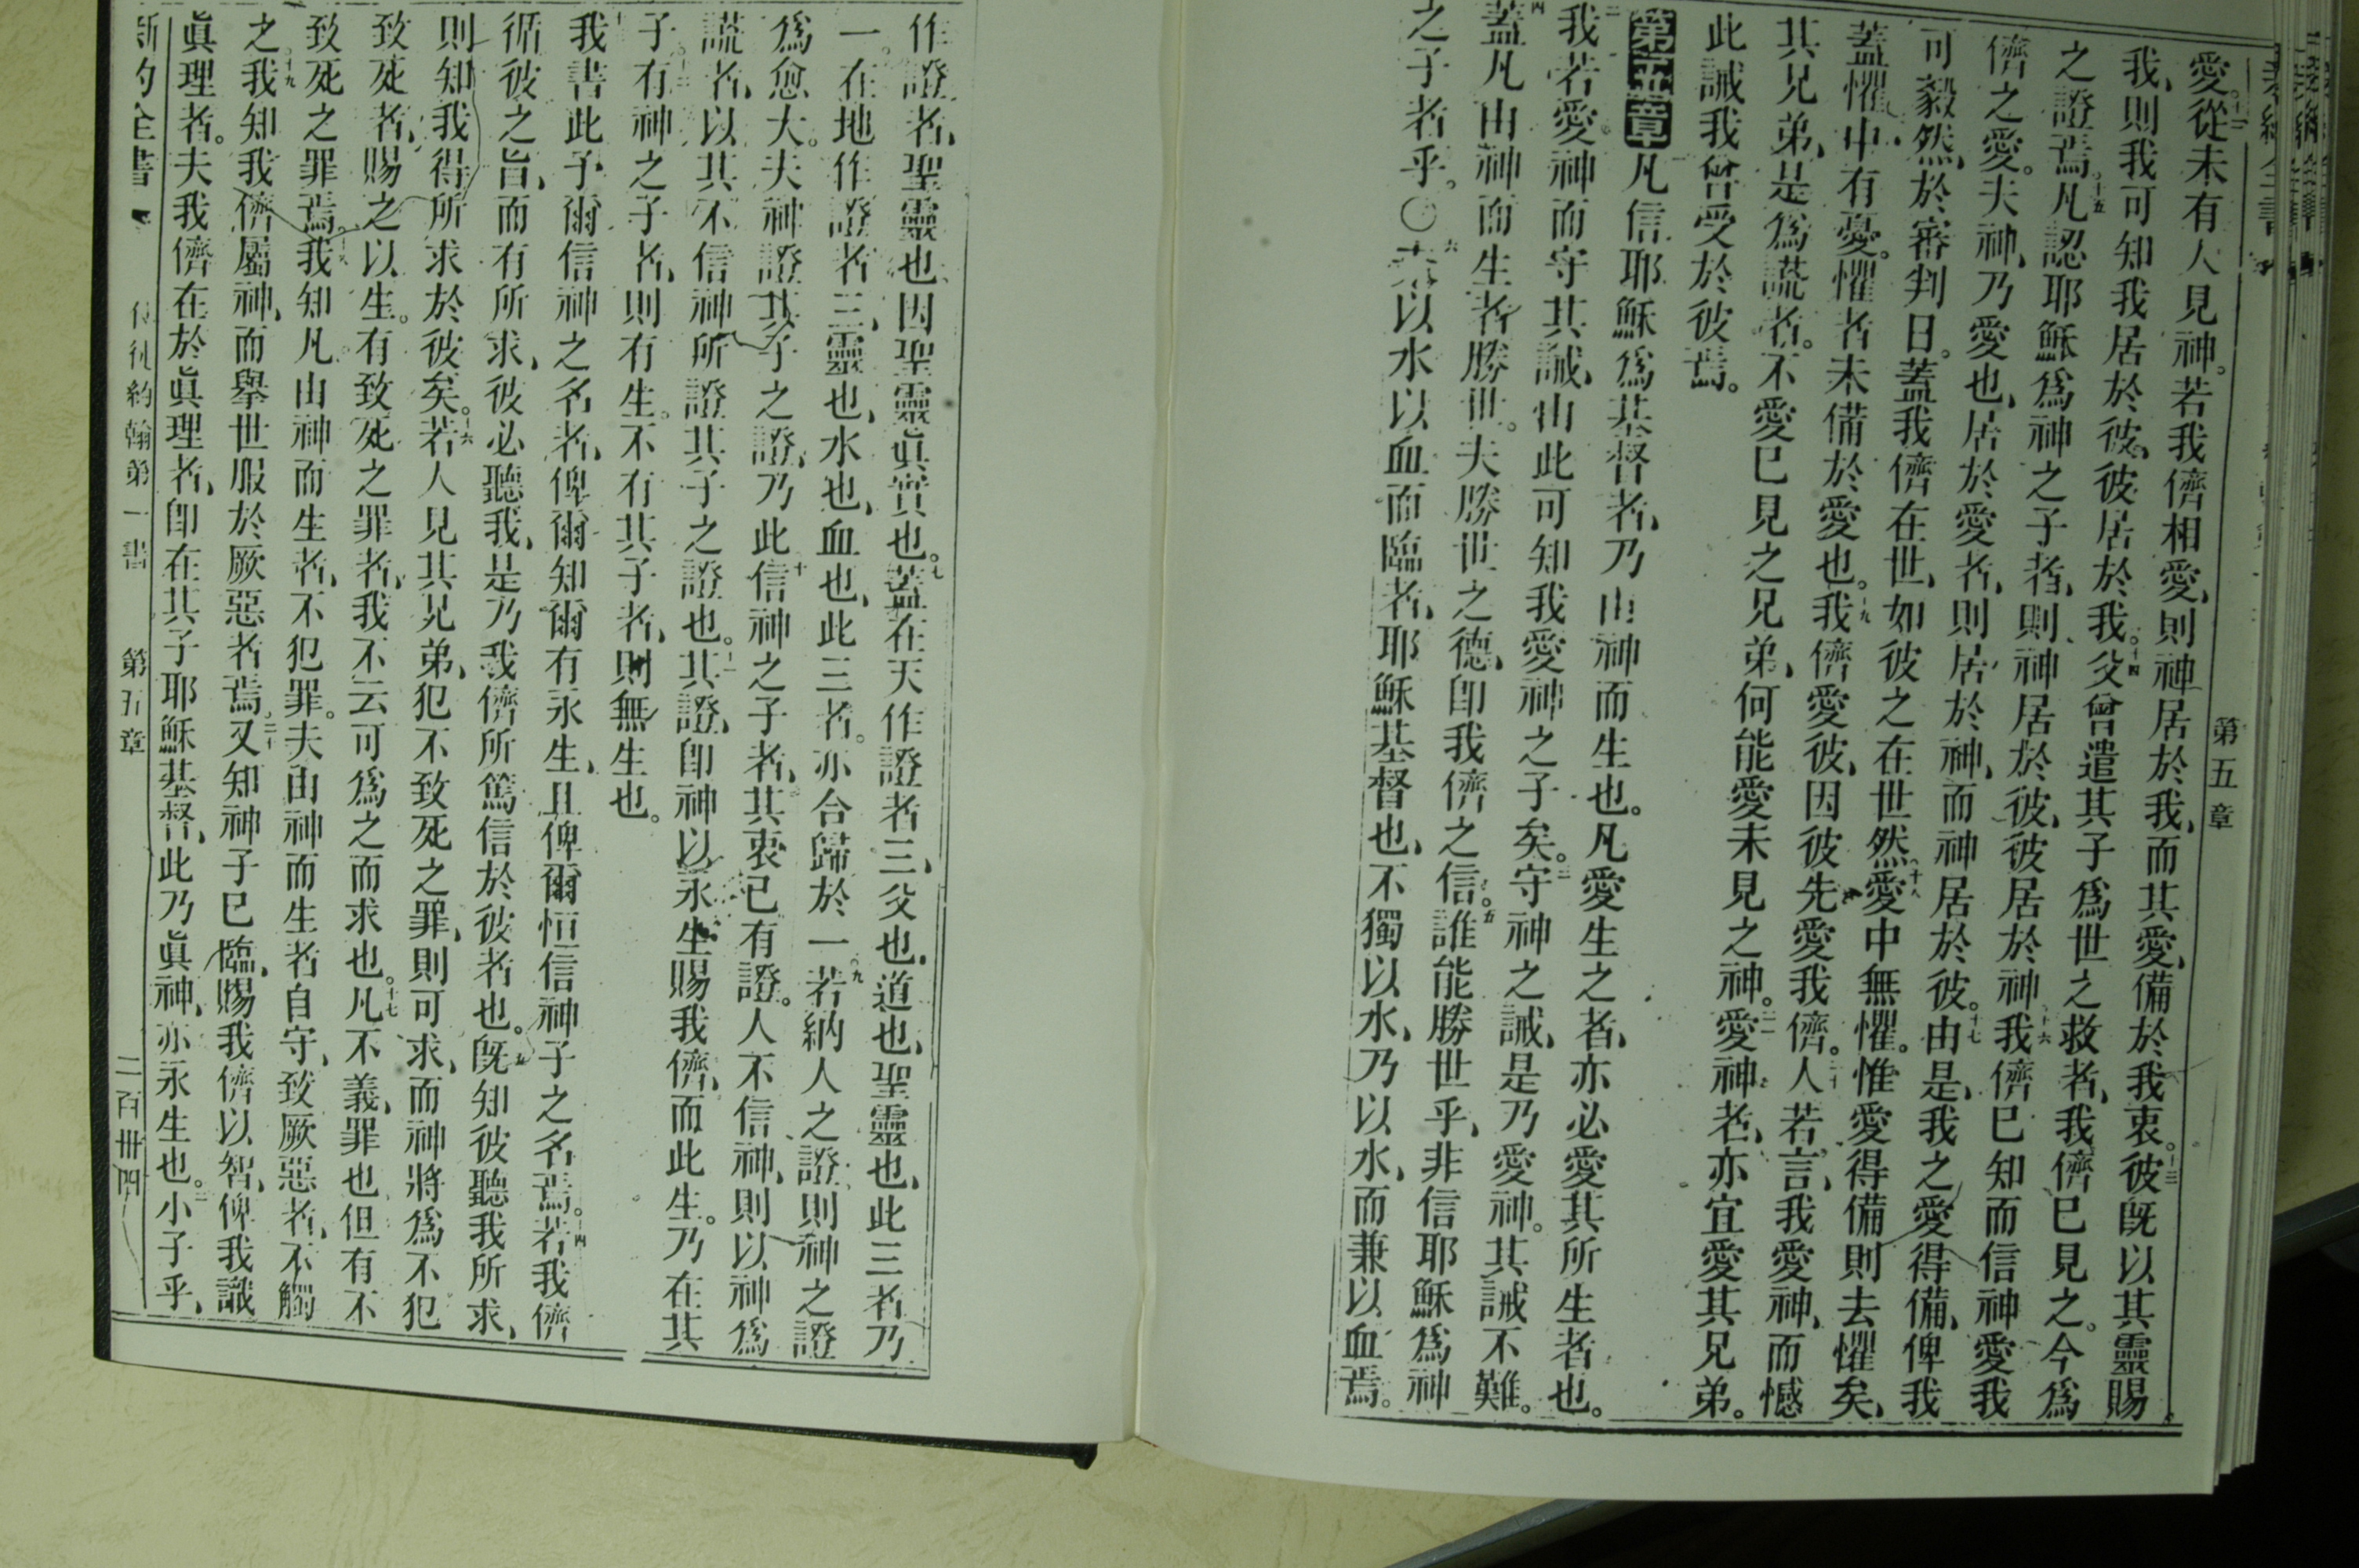 第五章
愛從未有人見神。若我儕相愛、則神居於我、而其愛、備於我衷。彼既以其靈賜
我、則我可知我居於彼、彼居於我。父曾遣其子爲世之救者、我儕已見之。今爲
之證焉。凡認耶穌爲神之子者、則神居於彼、彼居於神。我儕已知而信神愛我
儕之愛。夫神、乃愛也、居於愛者、則居於神、而神居於彼。由是、我之愛得備、俾我
可毅然、於審判日。蓋我儕在世、如彼之在世然。愛中無懼。惟愛得備則去懼矣、
蓋懼中有憂。懼者未備於愛也。我儕愛彼、因彼先愛我儕。人若言、我愛神、而憾
其兄弟、是爲謊者。不愛已見之兄弟、何能愛未見之神。愛神者、亦宜愛其兄弟。
此誡我曾受於彼焉。
第五章凡信耶穌爲基督者、乃由神而生也。凡愛生之者、亦必愛其所生者也。
我若愛神而守其誡、由此可知我愛神之子矣。守神之誡、是乃愛神。其誡不難。
蓋凡由神而生者勝世。夫勝世之德、即我儕之信。誰能勝世乎、非信耶穌爲神
之子者乎。〇夫以水以血而臨者、耶穌基督也、不獨以水、乃以水、而兼以血焉。
作證者、聖靈也、因聖靈眞實也。蓋在天作證者三、父也、道也、聖靈也、此三者乃
一。在地作證者三、靈也、水也、血也、此三者。亦合歸於一。若納人之證、則神之證
爲愈大。夫神證其子之證、乃此信神之子者、其衷已有證。人不信神、則以神爲
謊者、以其不信神所證其子之證也。其證、即神以永生賜我儕、而此生。乃在其
子。有神之子者、則有生。不有其子者、則無生也。
我書此予爾信神之名者、俾爾知爾有永生、且俾爾恒信神子之名焉。若我儕
循彼之旨、而有所求、彼必聽我、是乃我儕所篤信於彼者也。既知彼聽我所求、
則知我得所求於彼矣。若人見其兄弟、犯不致死之罪、則可求、而神將爲不犯
致死者、賜之以生。有致死之罪者、我不云可爲之而求也。凡不義、罪也但有不
致死之罪焉。我知凡由神而生者、不犯罪。夫由神而生者自守、致厥惡者、不觸
之。我知我儕屬神、而舉世服於厥惡者焉。又知神子已臨、賜我儕以智、俾我識
眞理者。夫我儕在於眞理者、即在其子耶穌基督、此乃眞神、亦永生也。小子乎、
新約全書 使徒約翰第一書 第五章 二百卅四